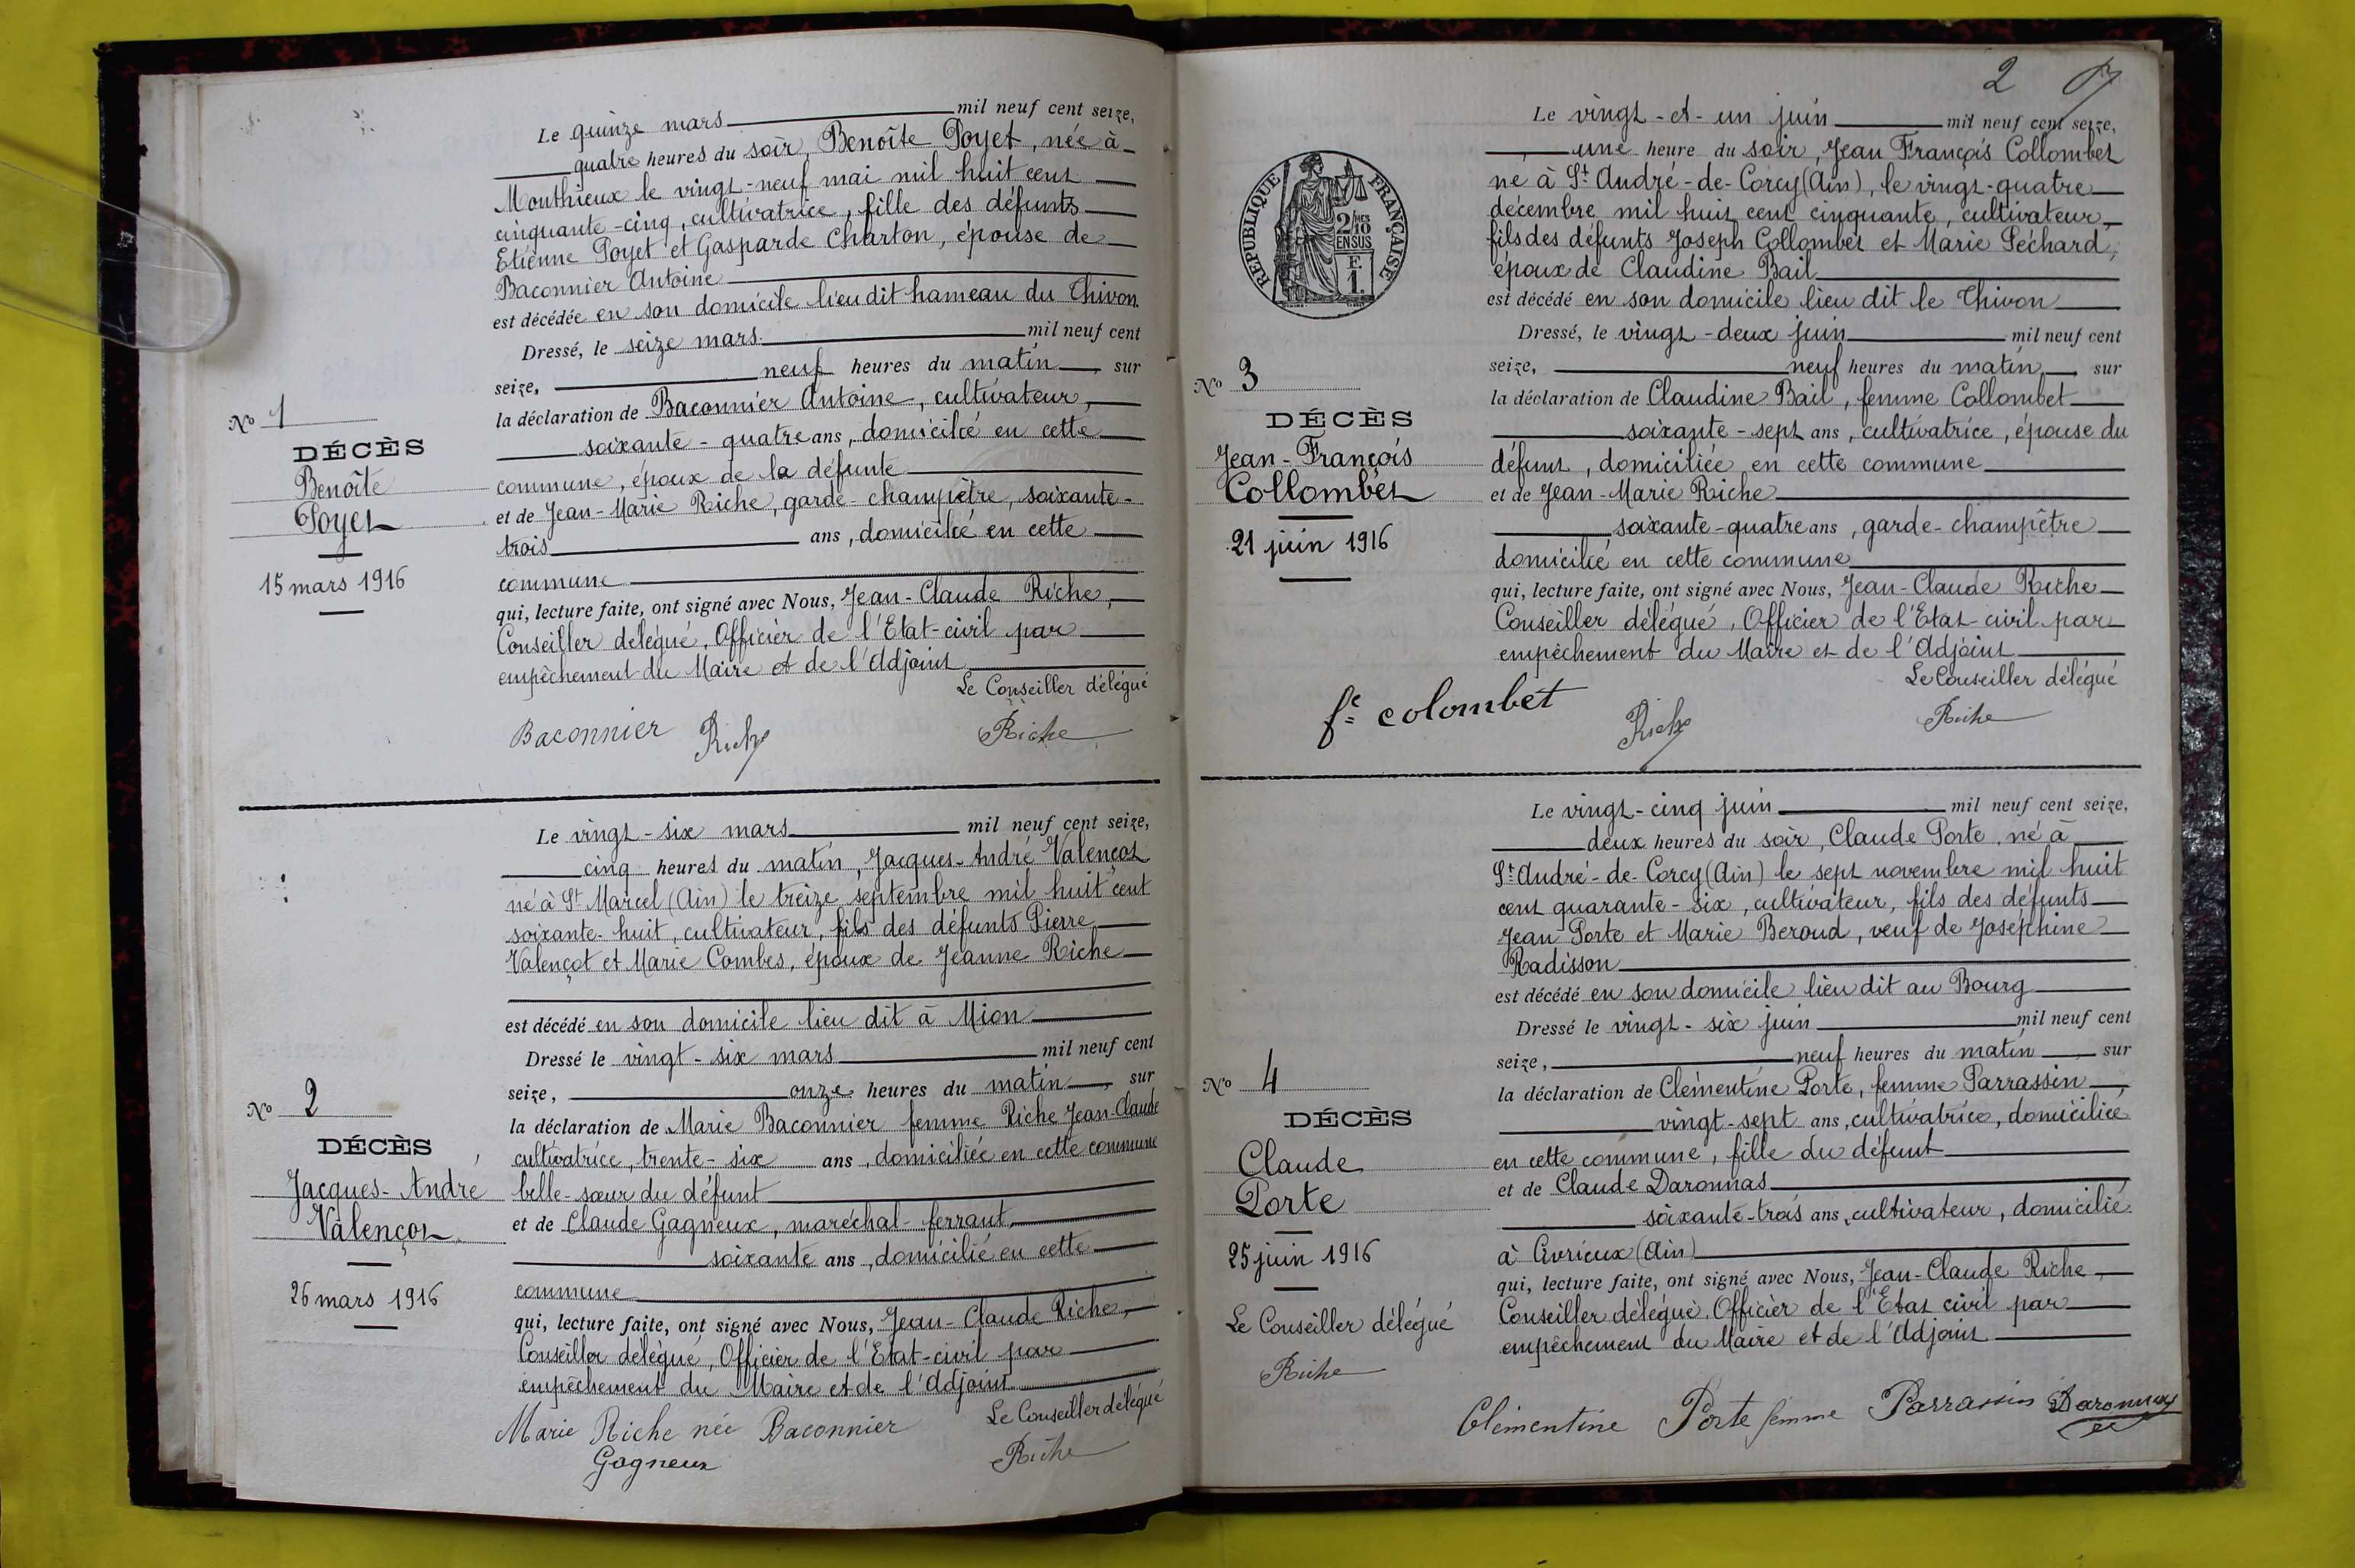 Le quinze mars mil neuf cent seize,
quatre heures du soir, Benoîte Poyet, née à
Monthieux le vingt-neuf mai mil huit cent
cinquante-cinq, cultivatrice, fille des défunts
Etienne Poyet et Gasparde Charton, épouse de
Baconnier Antoine
est décédée en son domicile lieu dit hameau du Thivon.
Dressé, le seize mars mil neuf cent
seize, neuf heures du matin, sur
la déclaration de Baconnier Antoine, cultivateur,
soixante-quatre ans, domicilié en cette
commune, époux de la défunte
et de Jean-Marie Riche, garde-champêtre, soixante-
trois ans, domicilié en cette
commune
qui, lecture faite, ont signé avec Nous, Jean-Claude Riche,
Conseiller délégué, Officier de l'Etat-civil par
empêchement du Maire et de l'Adjoint
Le Conseiller délégué
Baconnier Riche Riche
No 1
DÉCÈS
Benoîte
Poyet
15 mars 1916
Le vingt-six mars mil neuf cent seize,
cinq heures du matin, Jacques-André Valençot
né à St Marcel (Ain) le treize septembre mil huit cent
soixante-huit, cultivateur, fils des défunts Pierre
Valençot et Marie Combes, époux de Jeanne Riche
est décédé en son domicile lieu dit à Mion
Dressé le vingt-six mars mil neuf cent
seize, onze heures du matin, sur
la déclaration de Marie Baconnier femme Riche Jean-Claude
cultivatrice, trente-six ans, domiciliée en cette commune
belle-sœur du défunt
et de Claude Gagneux, maréchal-ferrant,
soixante ans, domicilié en cette
commune
qui, lecture faite, ont signé avec Nous, Jean-Claude Riche,
Conseiller délégué, Officier de l'Etat-civil par
empêchement du Maire et de l'Adjoint
Le Conseiller délégué
Marie Riche née Baconnier
Gagneux Riche
No 2
DÉCÈS
Jacques-André
Valençot
26 mars 1916
2
Le vingt-et-un juin mil neuf cent seize,
une heure du soir, Jean François Collombet
né à St André-de-Corcy (Ain), le vingt-quatre
décembre mil huit cent cinquante, cultivateur,
fils des défunts Joseph Collombet et Marie Péchard,
époux de Claudine Bail
est décédé en son domicile lieu dit le Thivon
Dressé, le vingt-deux juin mil neuf cent
seize, neuf heures du matin, sur
la déclaration de Claudine Bail, femme Collombet
soixante-sept ans, cultivatrice, épouse du
défunt, domiciliée en cette commune
et de Jean-Marie Riche
soixante-quatre ans, garde-champêtre
domicilié en cette commune
qui, lecture faite, ont signé avec Nous, Jean-Claude Riche
Conseiller délégué, Officier de l'Etat-civil par
empêchement du Maire et de l'Adjoint
Le Conseiller délégué
fe colombet Riche Riche
REPUBLIQUE FRANÇAISE
2/10 MES
EN SUS
F.
1.
No 3
DÉCÈS
Jean-François
Collombet
21 juin 1916
Le vingt-cinq juin mil neuf cent seize,
deux heures du soir, Claude Porte, né à
St André-de-Corcy (Ain) le sept novembre mil huit
cent quarante-six, cultivateur, fils des défunts
Jean Porte et Marie Beroud, veuf de Joséphine
Radisson
est décédé en son domicile lieu dit au Bourg
Dressé le vingt-six juin mil neuf cent
seize, neuf heures du matin, sur
la déclaration de Clémentine Porte, femme Parrassin,
vingt-sept ans, cultivatrice, domiciliée
en cette commune, fille du défunt
et de Claude Daronnas
soixante-trois ans, cultivateur, domicilié
à Civrieux (Ain)
qui, lecture faite, ont signé avec Nous, Jean-Claude Riche,
Conseiller délégué, Officier de l'Etat civil par
empêchement du Maire et de l'Adjoint
Clémentine Porte femme Parrassin
No 4
DÉCÈS
Claude
Porte
25 juin 1916
Le Conseiller délégué
Riche